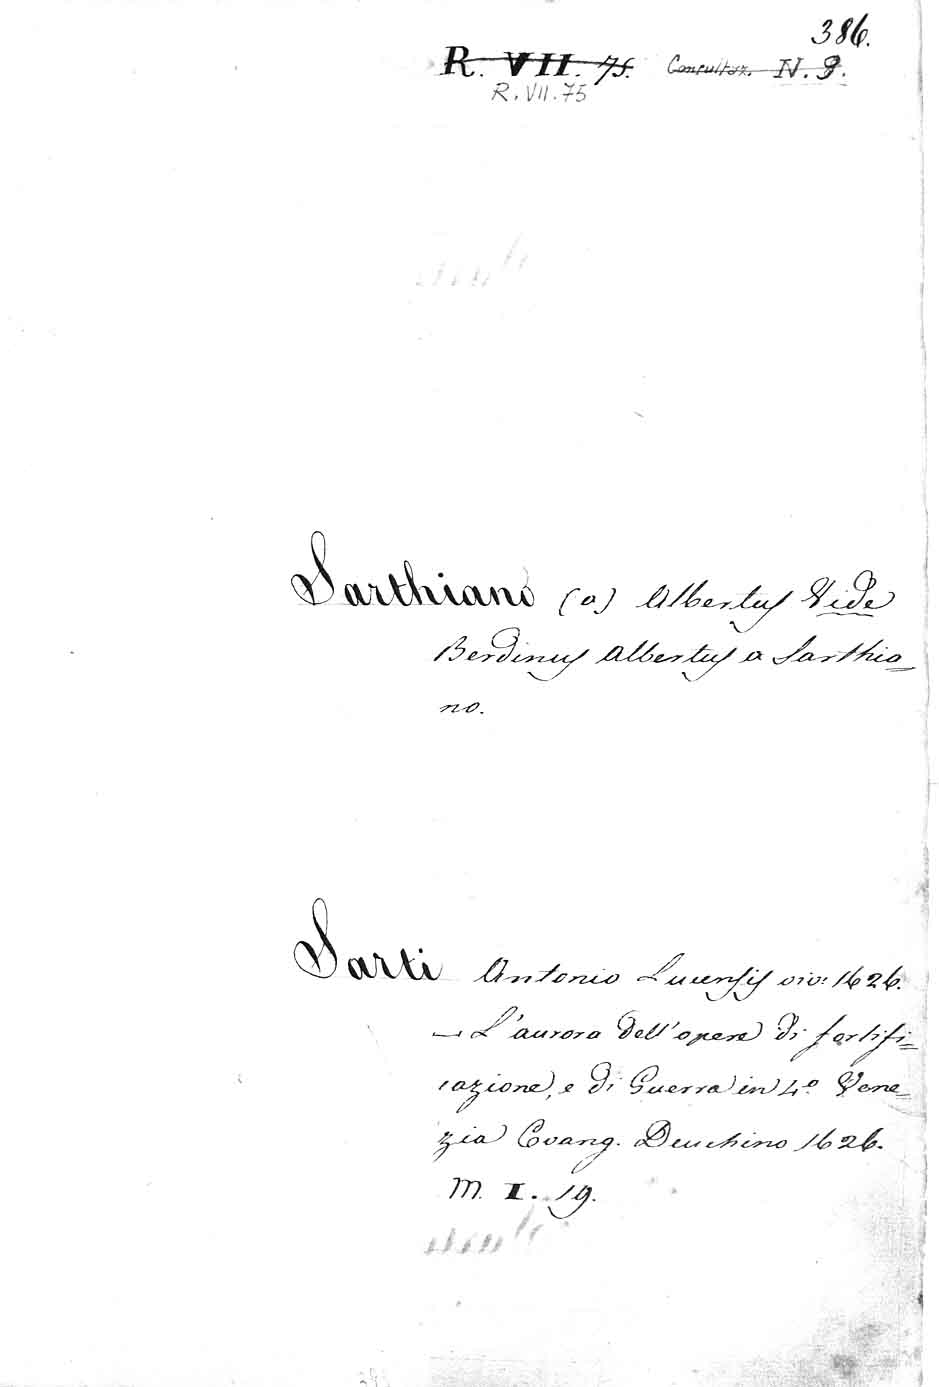 386.
R. VII. 75. Consultaz. N. 9.
R. VII. 75
Sarthiano (a) Albertus Vide
Berdinus Albertus a Sarthia=
no.
Sarti Antonio Lucensis viv: 1626.
— L'aurora dell'opere di fortifi=
cazione, e di Guerra in 4.º Vene=
zia Evang. Deuchino 1626.
M. I. 19.